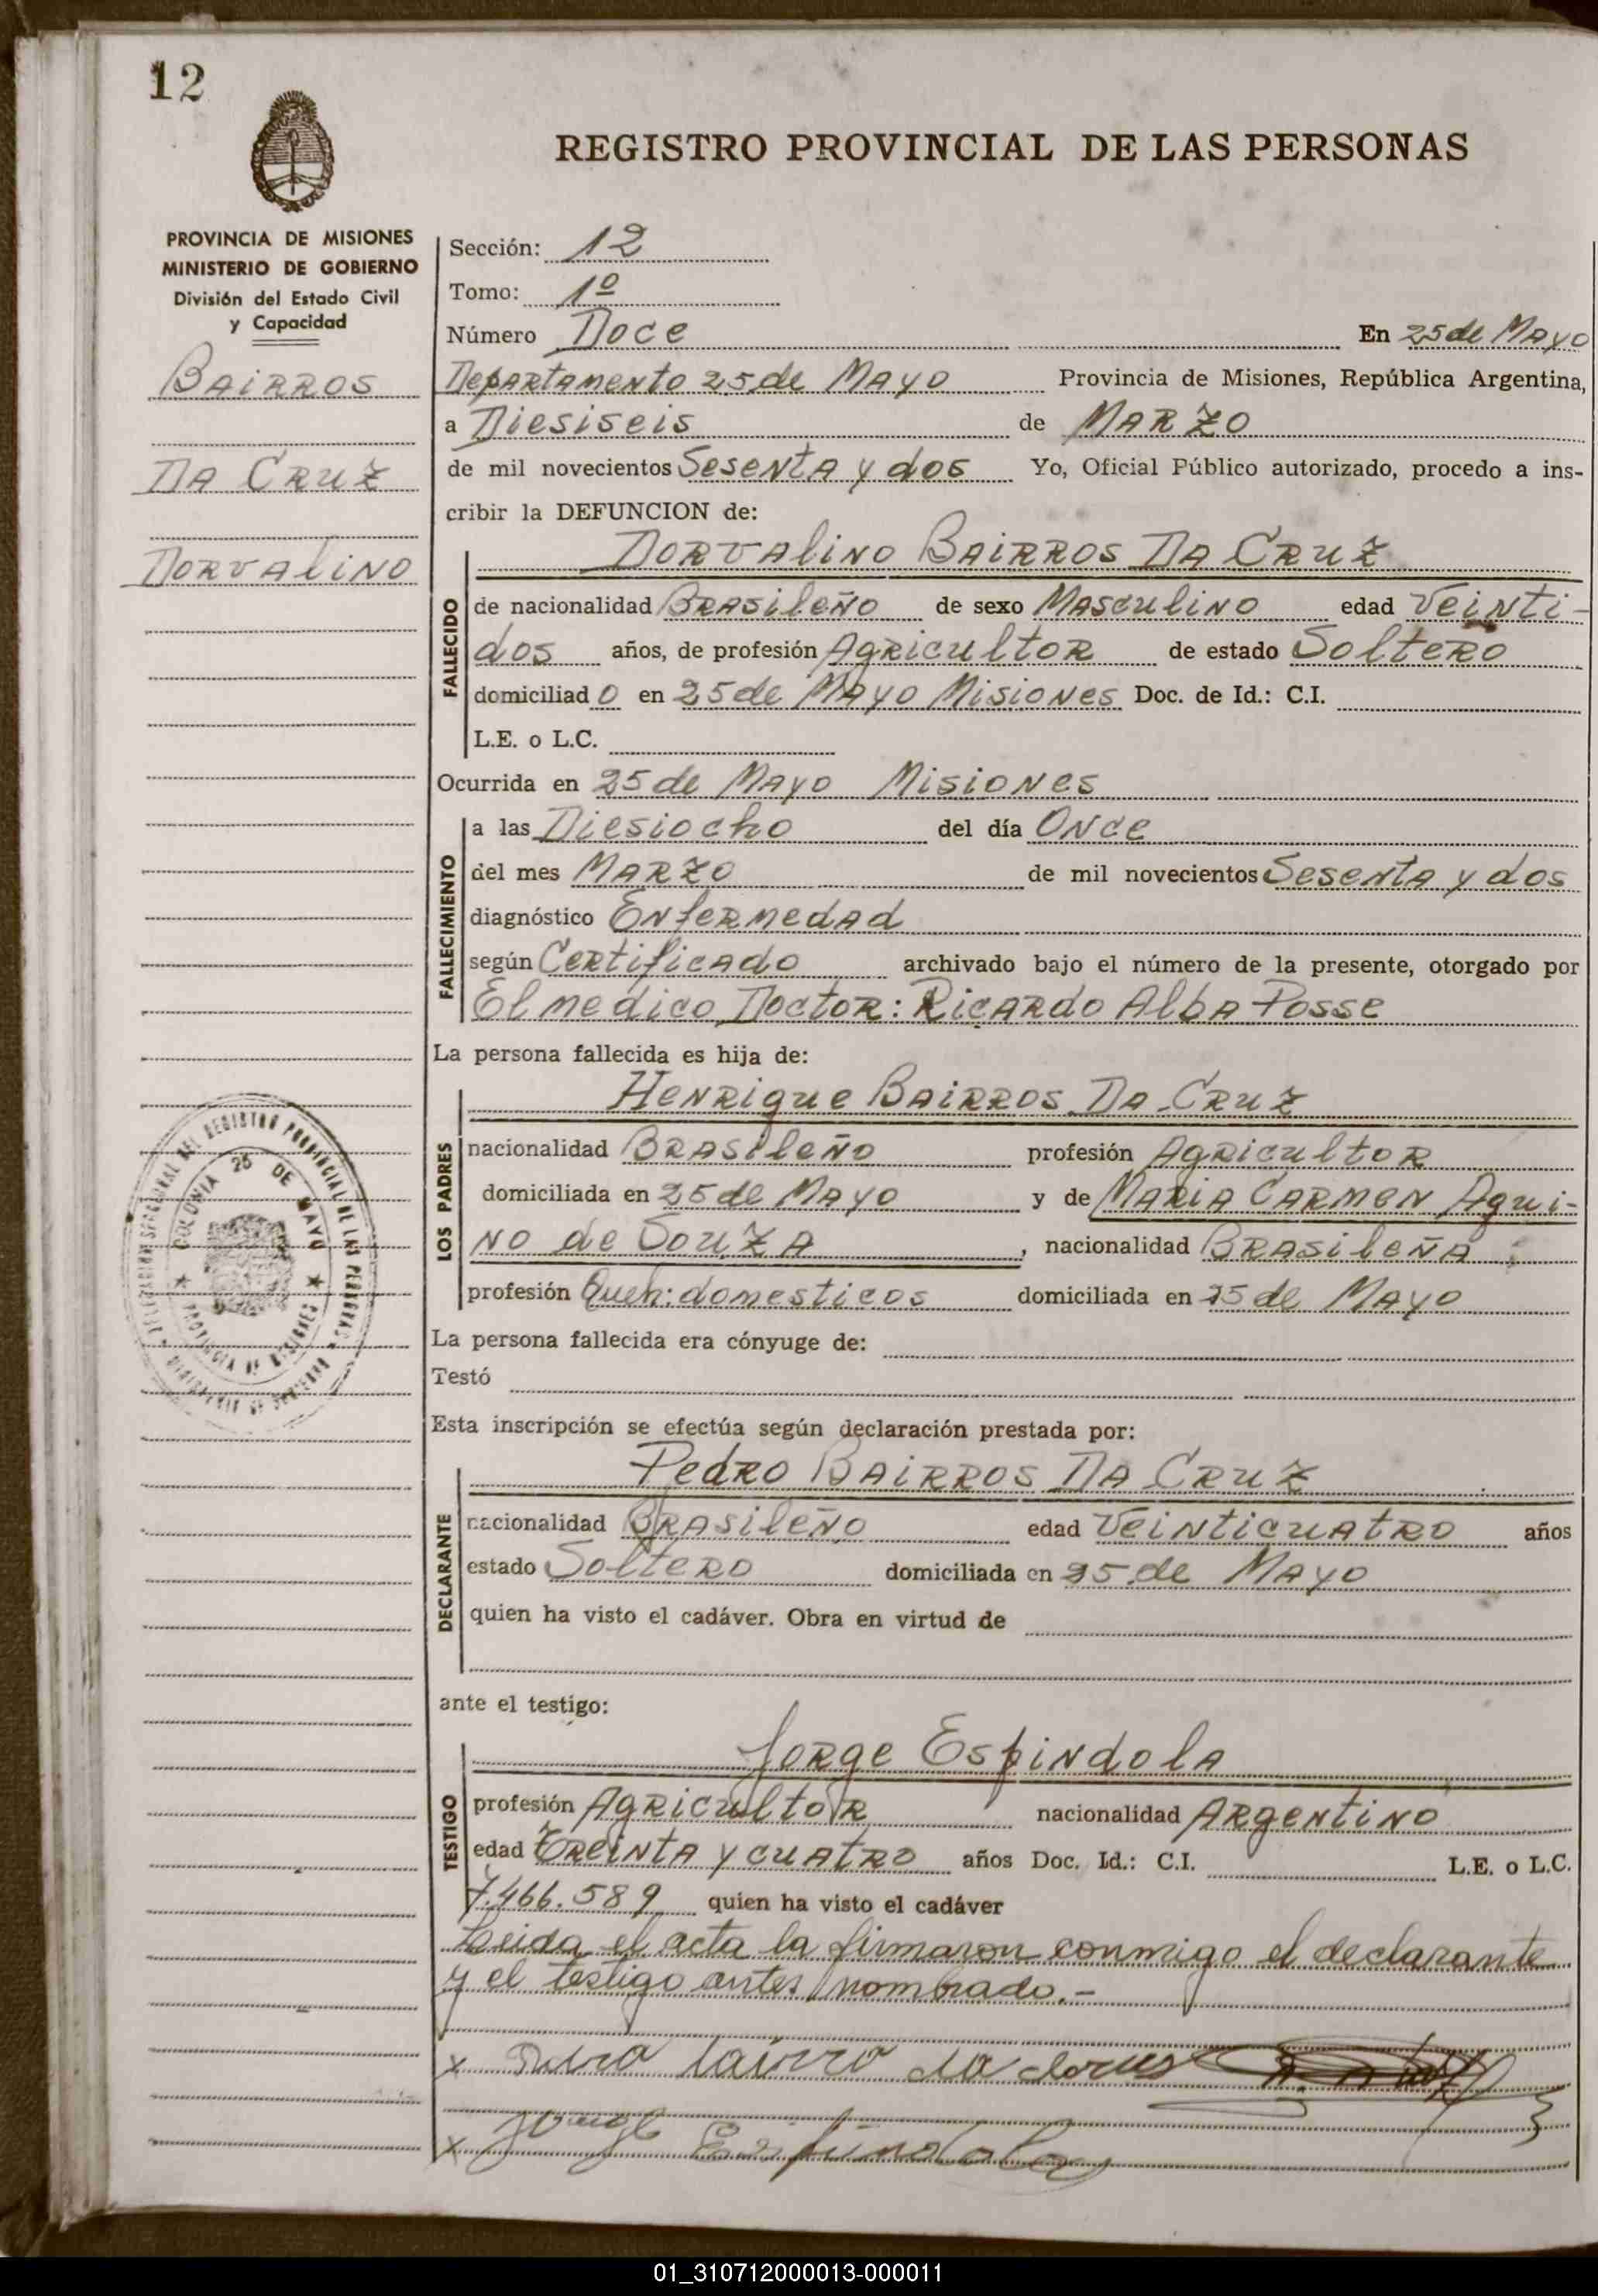 12
REGISTRO PROVINCIAL DE LAS PERSONAS
PROVINCIA DE MISIONES
MINISTERIO DE GOBIERNO
División del Estado Civil
y Capacidad
BAIRROS
DA CRUZ
DORVALINO
Sección: 12
Tomo: 1º
Número Doce En 25 de Mayo
Departamento 25 de Mayo Provincia de Misiones, República Argentina,
a Diesiseis de MARZO
de mil novecientos Sesenta y dos Yo, Oficial Público autorizado, procedo a ins-
cribir la DEFUNCION de:
DORVALINO BAIRROS DA CRUZ
FALLECIDO
de nacionalidad Brasileño de sexo Masculino edad Veinti-
dos años, de profesión Agricultor de estado Soltero
domiciliad o en 25 de Mayo Misiones Doc. de Id.: C.I.
L.E. o L.C.
Ocurrida en 25 de Mayo Misiones
FALLECIMIENTO
a las Diesiocho del día Once
del mes MARZO de mil novecientos Sesenta y dos
diagnóstico Enfermedad
según Certificado archivado bajo el número de la presente, otorgado por
El medico Doctor: Ricardo Alba Posse
La persona fallecida es hija de:
Henrique BAIRROS DA CRUZ
LOS PADRES
nacionalidad Brasileño profesión Agricultor
domiciliada en 25 de Mayo y de MARIA CARMEN Aqui-
no de Souza, nacionalidad Brasileña
profesión Queh: domesticos domiciliada en 25 de Mayo
La persona fallecida era cónyuge de:
Testó
Esta inscripción se efectúa según declaración prestada por:
Pedro BAIRROS DA CRUZ
DECLARANTE
nacionalidad Brasileño edad Veinticuatro años
estado Soltero domiciliada en 25 de Mayo
quien ha visto el cadáver. Obra en virtud de
ante el testigo:
Jorge Espindola
TESTIGO
profesión Agricultor nacionalidad Argentino
edad Treinta y cuatro años Doc. Id.: C.I. L.E. o L.C.
7.466.589 quien ha visto el cadáver
Leida el acta la firmaron conmigo el declarante
y el testigo antes nombrado.-
COLONIA 25 DE MAYO
PROVINCIA DE MISIONES
01_310712000013-000011